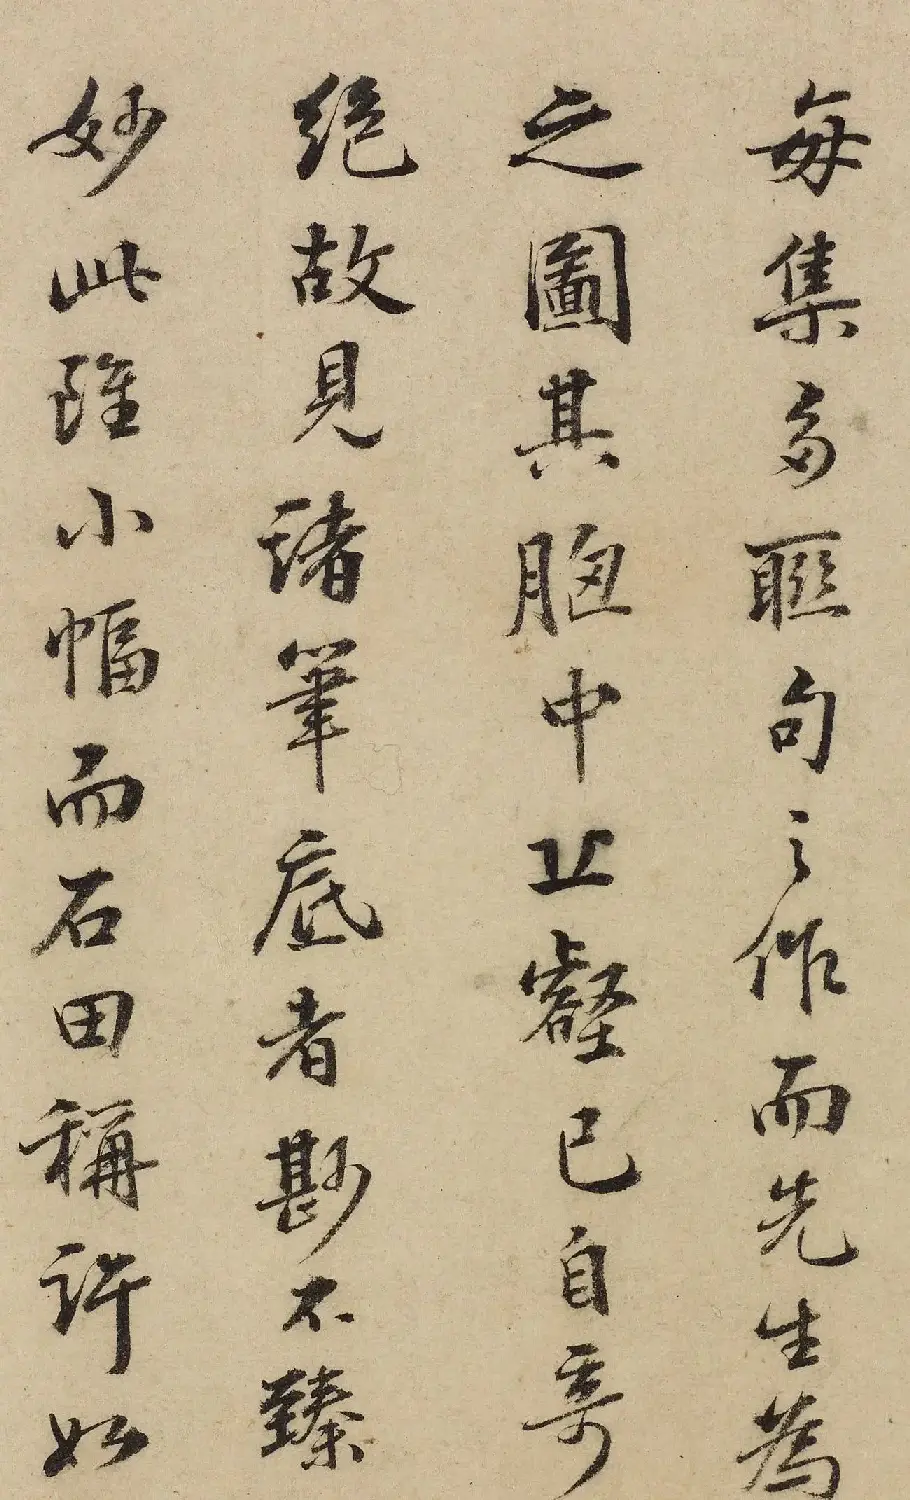 每集多聯句之作而先生為
之圖其胸中丘壑已自奇
絕故見諸筆底者尟不臻
妙此雖小幅而石田稱許如